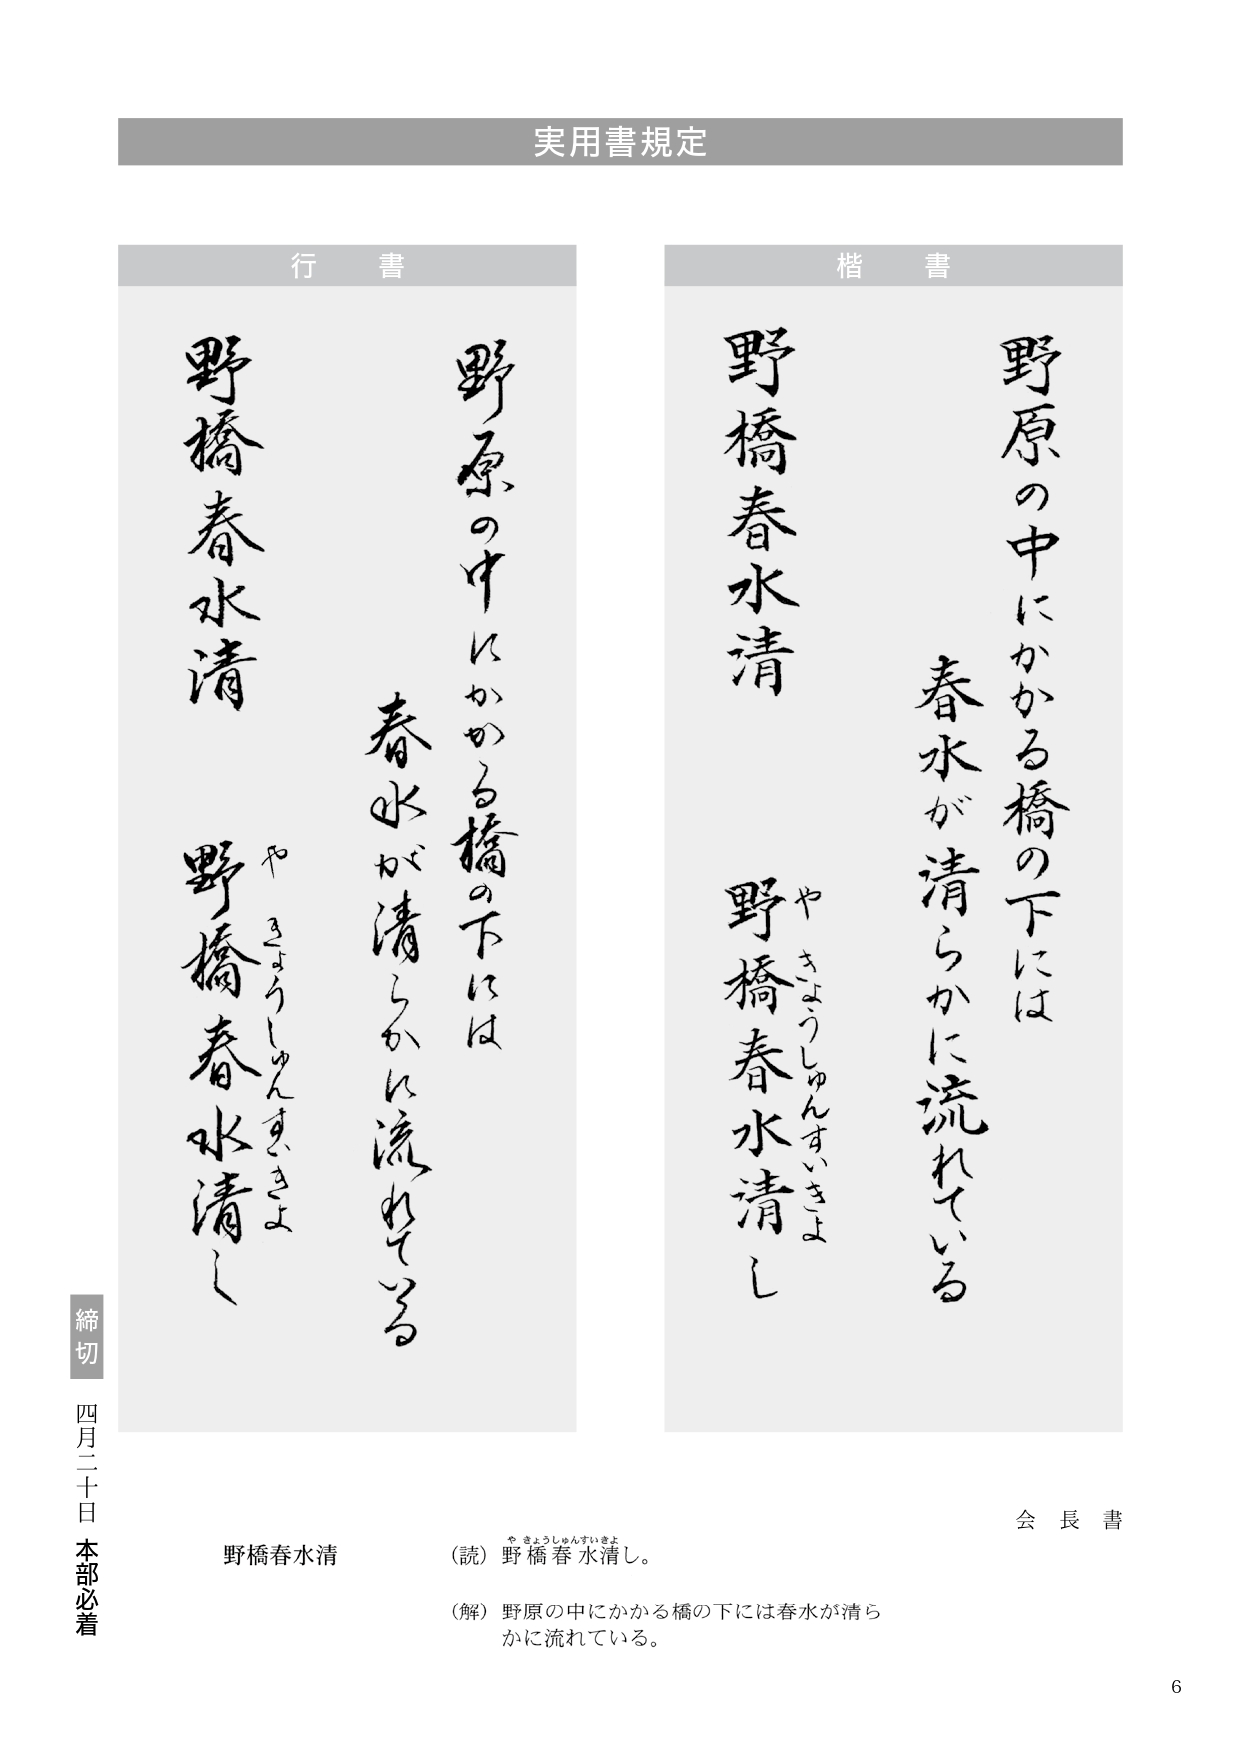 実用書規定
楷書
野原の中にかかる橋の下には
春水が清らかに流れている
野橋春水清
野橋春水清し
やきょうしゅんすいきよ
行書
野原の中にかかる橋の下には
春水が清らかに流れている
野橋春水清
野橋春水清し
やきょうしゅんすいきよ
締切 四月二十日 本部必着
会長書
野橋春水清
(読) 野橋春水清し。
やきょうしゅんすいきよ
(解) 野原の中にかかる橋の下には春水が清ら
かに流れている。
6